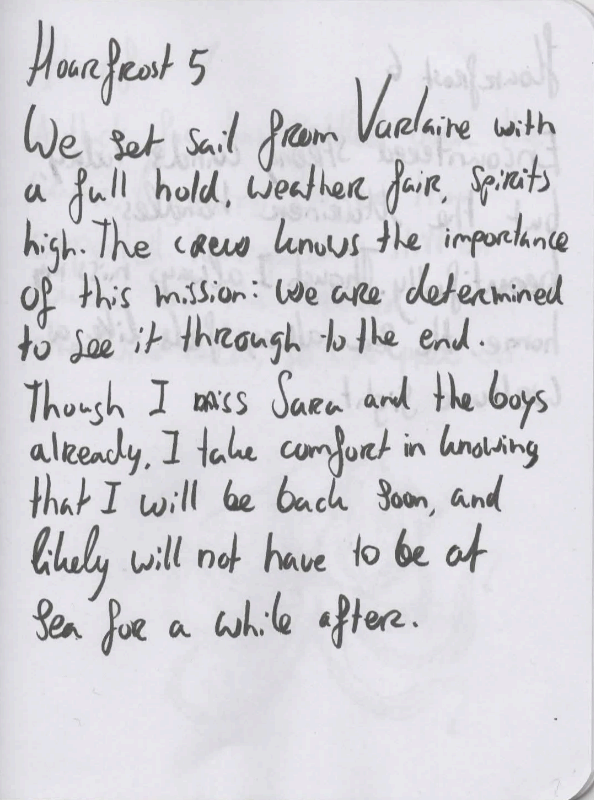 Hoarfrost 5
We set sail from Varlaine with
a full hold, weather fair, spirits
high. The crew knows the importance
of this mission: we are determined
to see it through to the end.
Though I miss Sara and the boys
already, I take comfort in knowing
that I will be back soon, and
likely will not have to be at
sea for a while after.